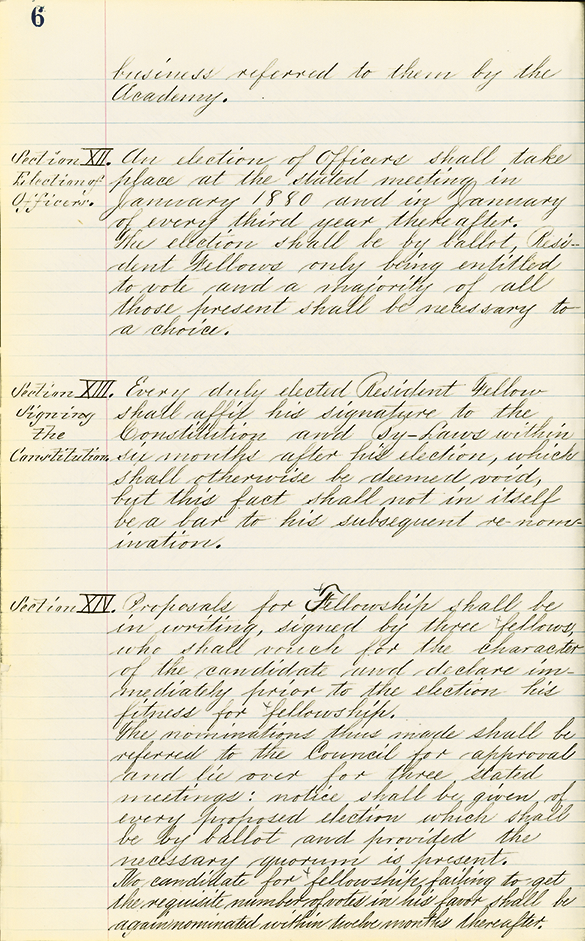 6
business referred to them by the
Academy.
Section XII.
Election of
Officers.
An election of Officers shall take
place at the stated meeting in
January 1880 and in January
of every third year thereafter.
The election shall be by ballot, Resi-
dent Fellows only being entitled
to vote and a majority of all
those present shall be necessary to
a choice.
Section XIII.
Signing
the
Constitution
Every duly elected Resident Fellow
shall affix his signature to the
Constitution and By-Laws within
six months after his election, which
shall otherwise be deemed void,
but this fact shall not in itself
be a bar to his subsequent re-nom-
ination.
Section XIV.
Proposals for Fellowship shall be
in writing, signed by three fellows,
who shall vouch for the character
of the candidate and declare im-
mediately prior to the election his
fitness for fellowship.
The nominations thus made shall be
referred to the Council for approval
and lie over for three stated
meetings: notice shall be given of
every proposed election which shall
be by ballot and provided the
necessary quorum is present.
No candidate for fellowship failing to get
the requisite number of votes in his favor shall be
again nominated within twelve months thereafter.